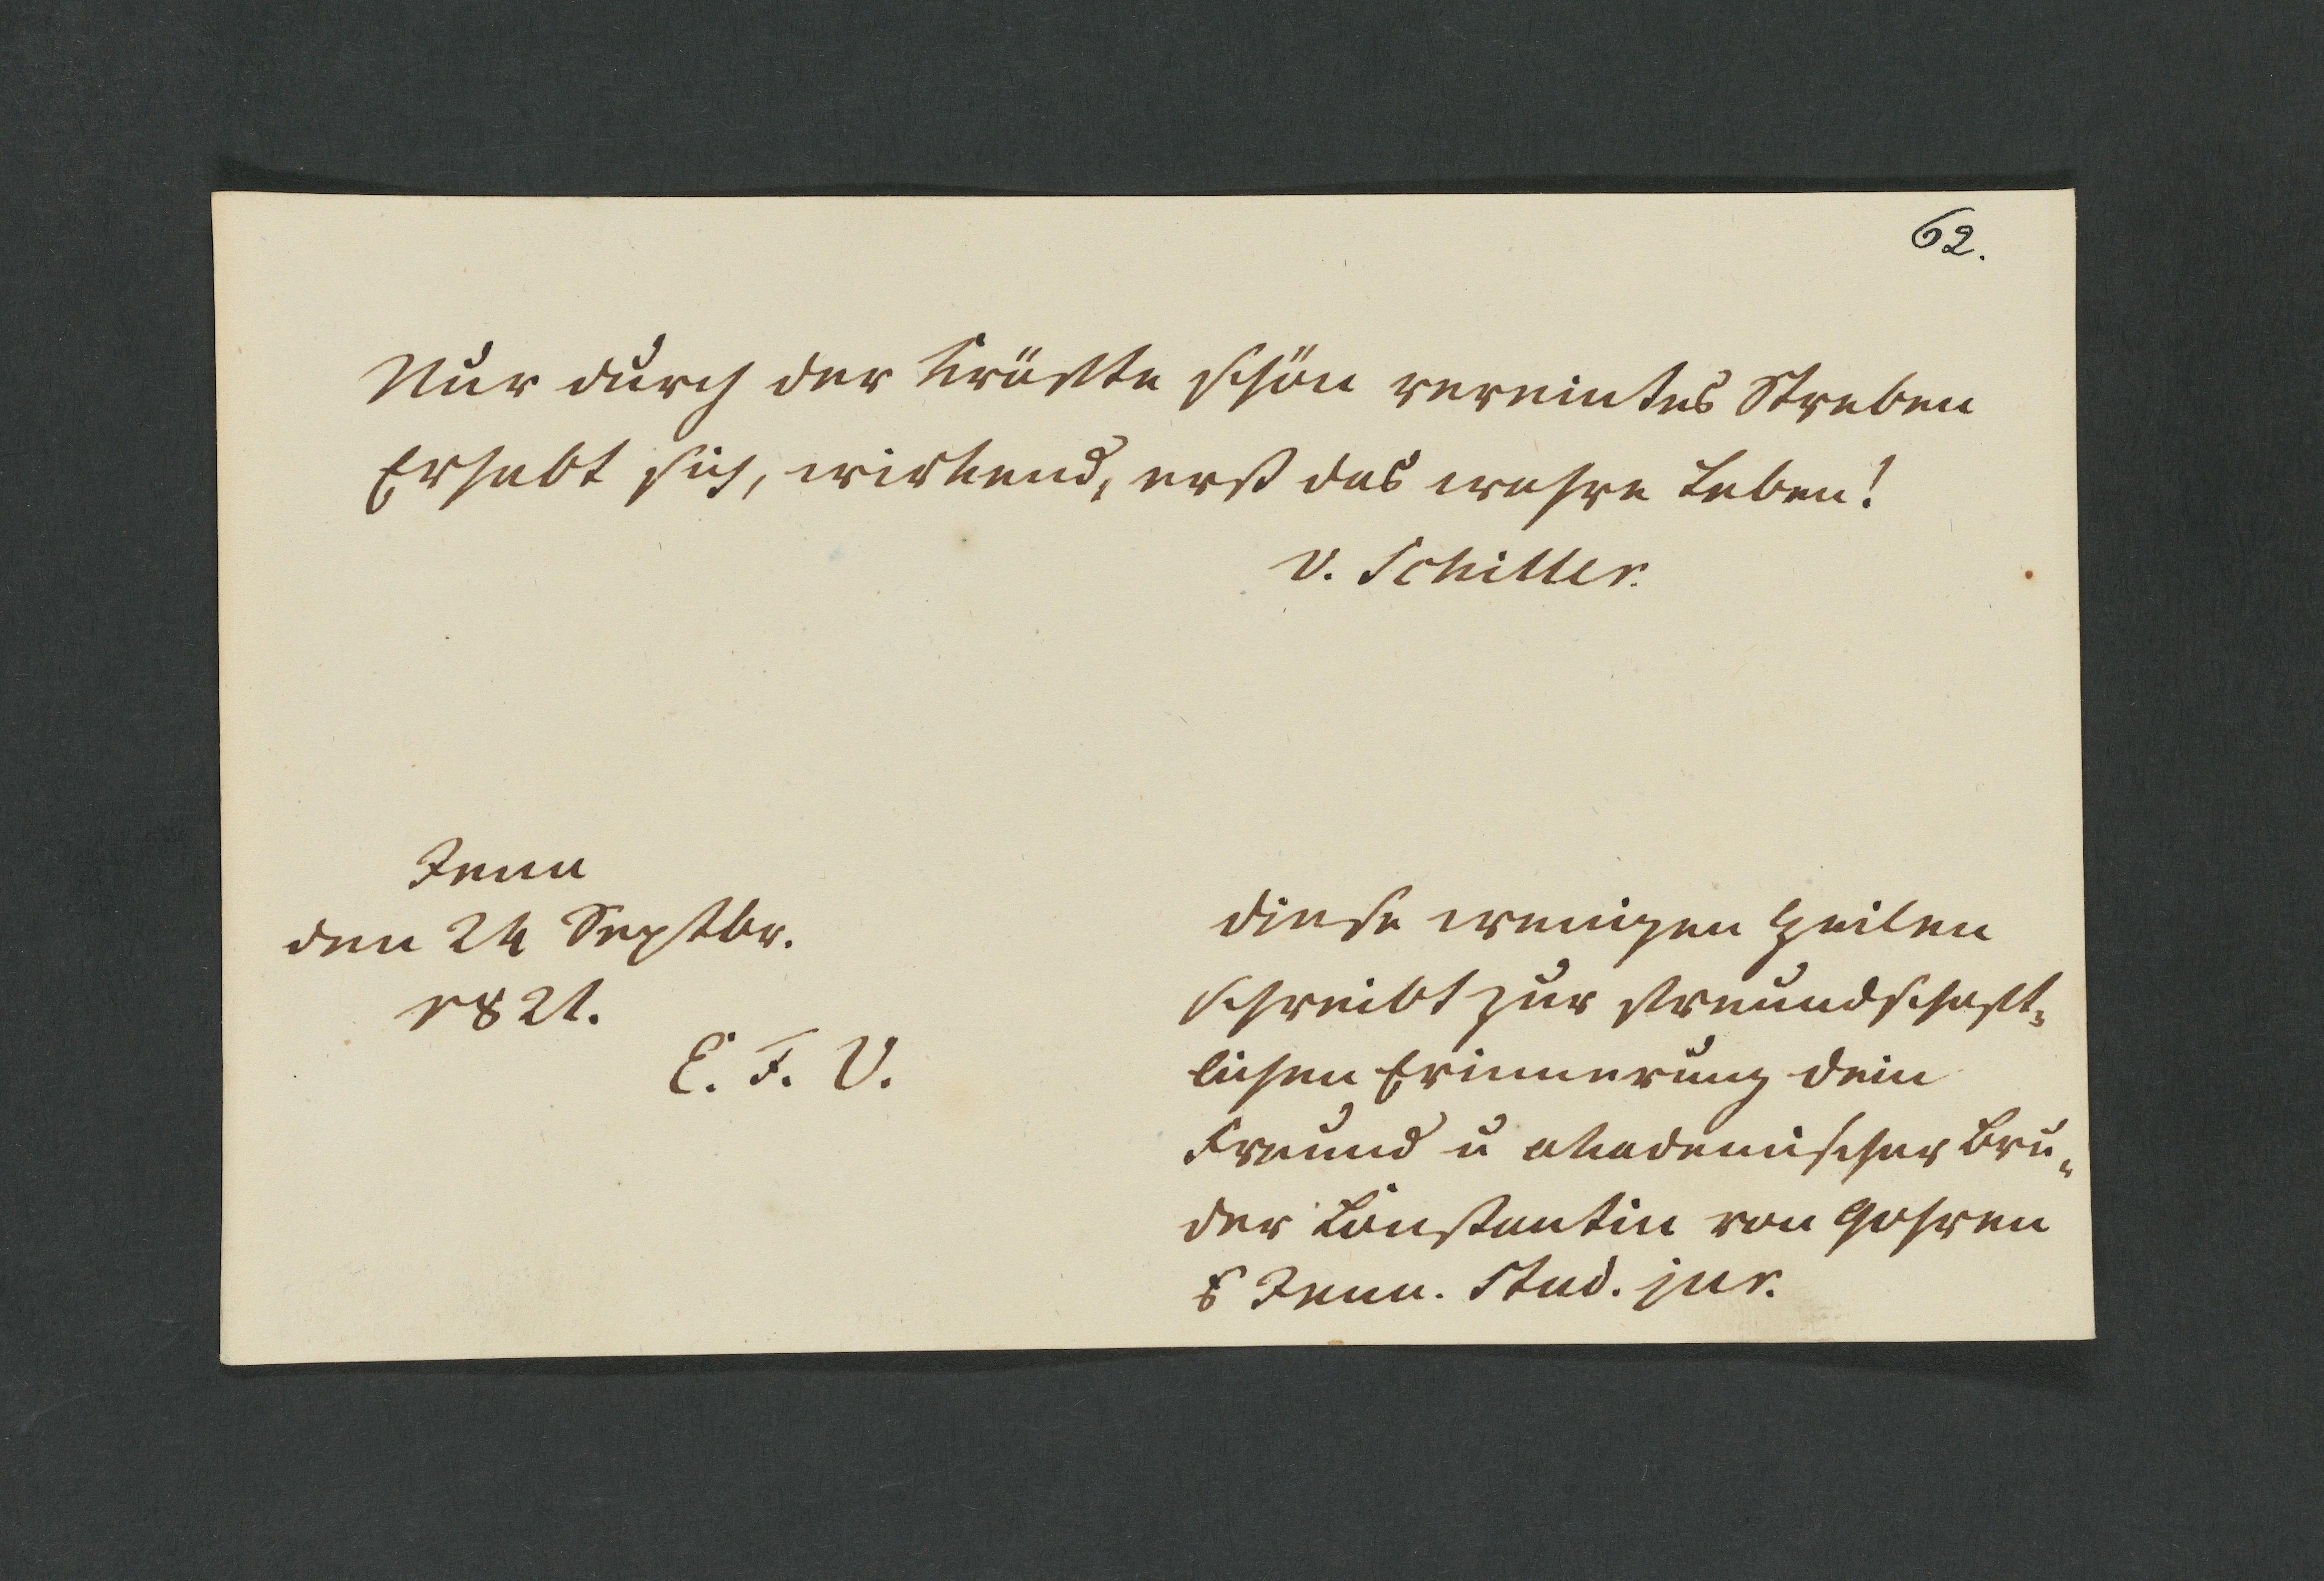 62.
Nur durch der Kräfte schön vereintes Streben
Erhebt sich, wirkend, erst das wahre Leben!
v. Schiller.
Jena
den 24 Septbr.
1821.
E. F. V.
Diese wenigen Zeilen
schreibt zur freundschaft-
lichen Erinnerung dein
Freund u akademischer Bru-
der Constantin von Gohren
Jena. Stud. jur.